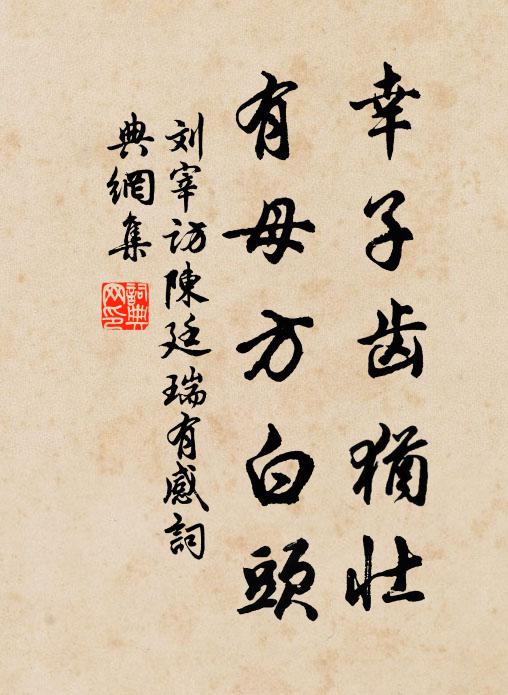 幸子齿犹壮
有母方白頭
刘宰访陳廷瑞有感詞
典網集
詞典
网印